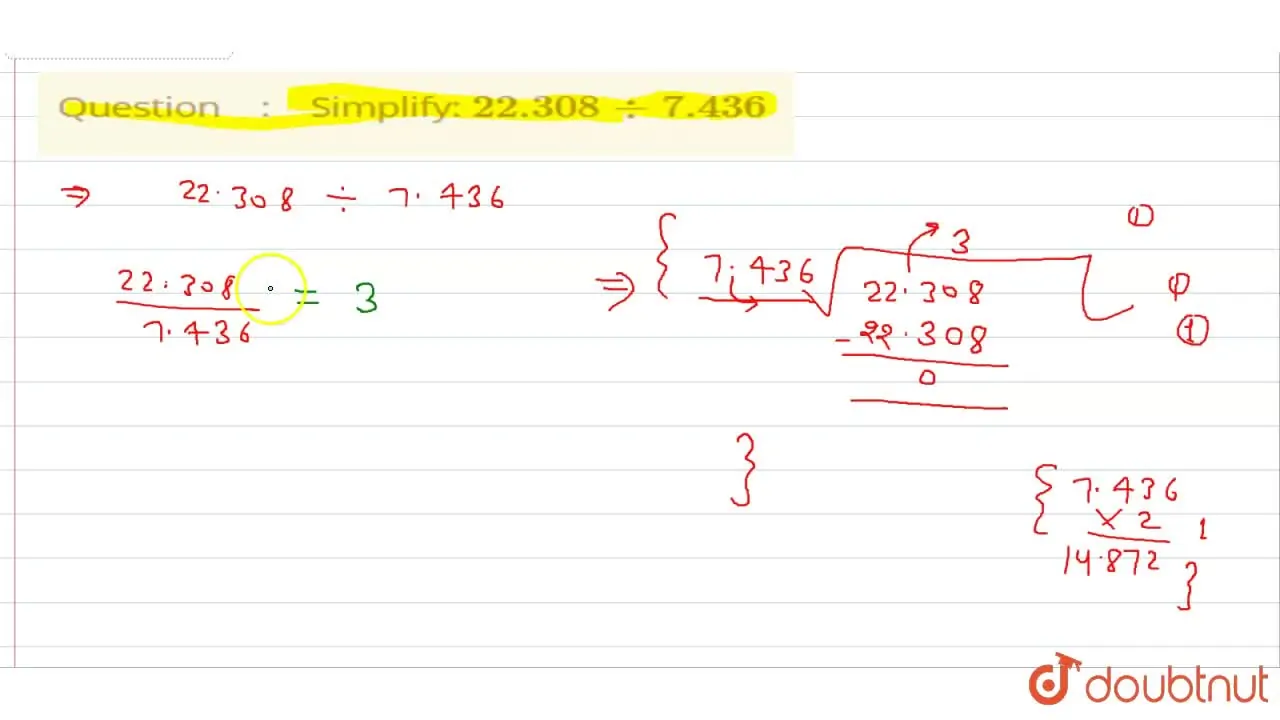 Question : Simplify: 22.308 ÷ 7.436
⇒ 22.308 ÷ 7.436
22.308
7.436
= 3
⇒ {
3
7.436 √ 22.308
- 22.308
0
}
1
1
1
{ 7.436
× 2 1
14.872 }
doubtnut